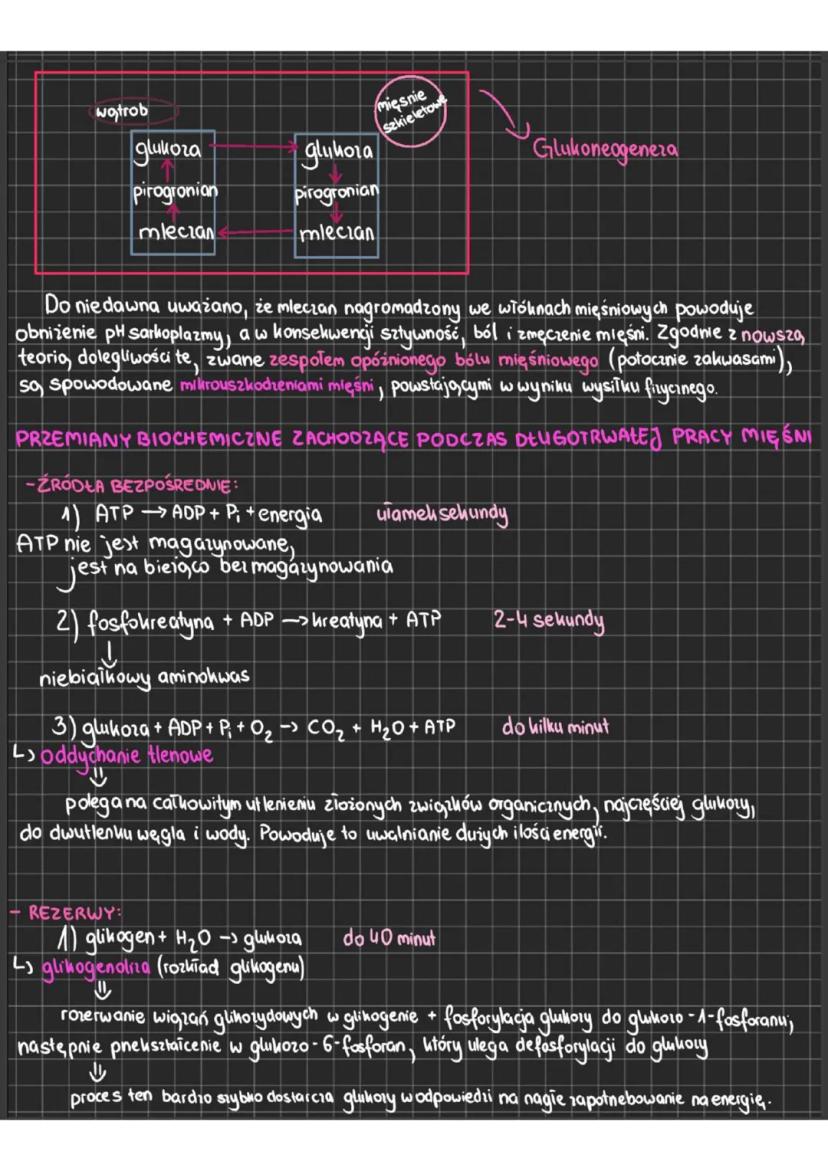 wątrob
mięsnie
szkieletowe
glukoza
glukoza
Glukoneogeneza
pirogronian
pirogronian
mleczan
mleczan
Do niedawna uważano, że mleczan nagromadzony we włóknach mięśniowych powoduje
obniżenie pH sarkoplazmy, a w konsekwencji sztywność, ból i zmęczenie mięśni. Zgodnie z nowszą
teorią dolegliwości te, zwane zespołem opóźnionego bólu mięśniowego (potocznie zakwasami),
są spowodowane mikrouszkodzeniami mięśni, powstającymi w wyniku wysiłku fizycznego.
PRZEMIANY BIOCHEMICZNE ZACHODZĄCE PODCZAS DŁUGOTRWAŁEJ PRACY MIĘŚNI
- ŹRÓDŁA BEZPOŚREDNIE:
1) ATP → ADP + Pi + energia ułamek sekundy
ATP nie jest magazynowane,
jest na bieżąco bez magazynowania
2) fosfokreatyna + ADP → kreatyna + ATP 2-4 sekundy
↓
niebiałkowy aminokwas
3) glukoza + ADP + Pi + O₂ → CO₂ + H₂O + ATP do kilku minut
↳ oddychanie tlenowe
⇓
polega na całkowitym utlenieniu złożonych związków organicznych, najczęściej glukozy,
do dwutlenku węgla i wody. Powoduje to uwalnianie dużych ilości energii.
- REZERWY:
1) glikogen + H₂O → glukoza do 40 minut
↳ glikogenoliza (rozkład glikogenu)
⇓
rozerwanie wiązań glikozydowych w glikogenie + fosforylacja glukozy do glukozo-1-fosforanu,
następnie przekształcenie w glukozo-6-fosforan, który ulega defosforylacji do glukozy
⇓
proces ten bardzo szybko dostarcza glukozy w odpowiedzi na nagłe zapotrzebowanie na energię.